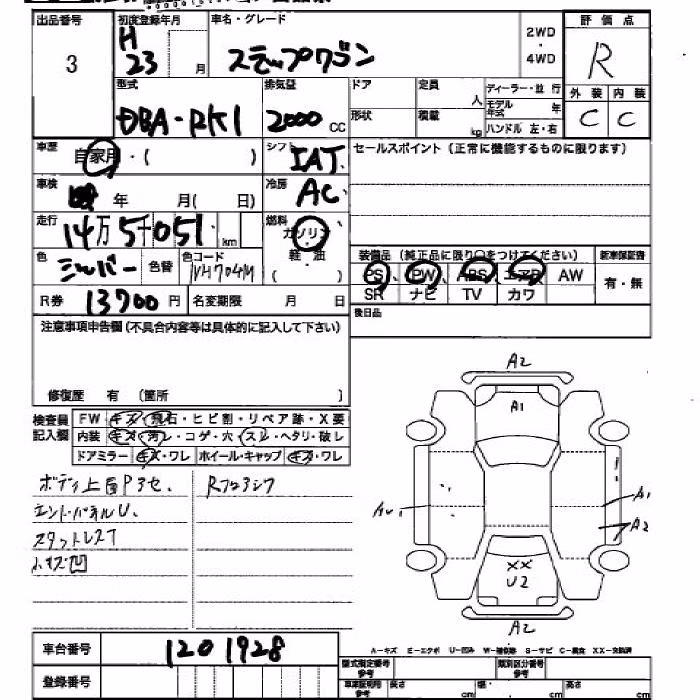 出品番号 初度登録年月 車名・グレード 評価点
3 H 23 月 ステップワゴン 2WD ・ 4WD R
型式 排気量 ドア 定員 人 ディーラー・並行 外装 内装
DBA-RK1 2000 cc 形状 積載 kg モデル年式 年 C C
ハンドル 左・右
車歴 自家用・( ) シフト IAT セールスポイント(正常に機能するものに限ります)
車検 年 月( 日) 冷房 AC
走行 14万5千051 km 燃料 ガソリン・軽・油 ( )
色 シルバー 色替 色コード NH704M 装備品(純正品に限り〇をつけてください) 新車保証書
PS PW ABS エアB AW 有・無
R券 13700円 名変期限 月 日 SR ナビ TV カワ
注意事項申告欄(不具合内容等は具体的に記入して下さい) 後日品
修復歴 有 (箇所 )
検査員記入欄 FW キズ・飛石・ヒビ割・リペア跡・X要
内装 キズ・汚レ・コゲ・穴・スレ・ヘタリ・破レ
ドアミラー キズ・ワレ ホイール・キャップ キズ・ワレ
A2
A1
A1
A2
XX
U2
A2
エンドパネルU、
スタットレス7
小キズ凹
車台番号 1201928
A-キズ E-エクボ U-凹み W-補修跡 S-サビ C-腐食 XX-交換済
登録番号 型式指定番号 参考 類別区分番号 参考
車庫証明用 参考 長さ cm 幅・ cm 高さ cm